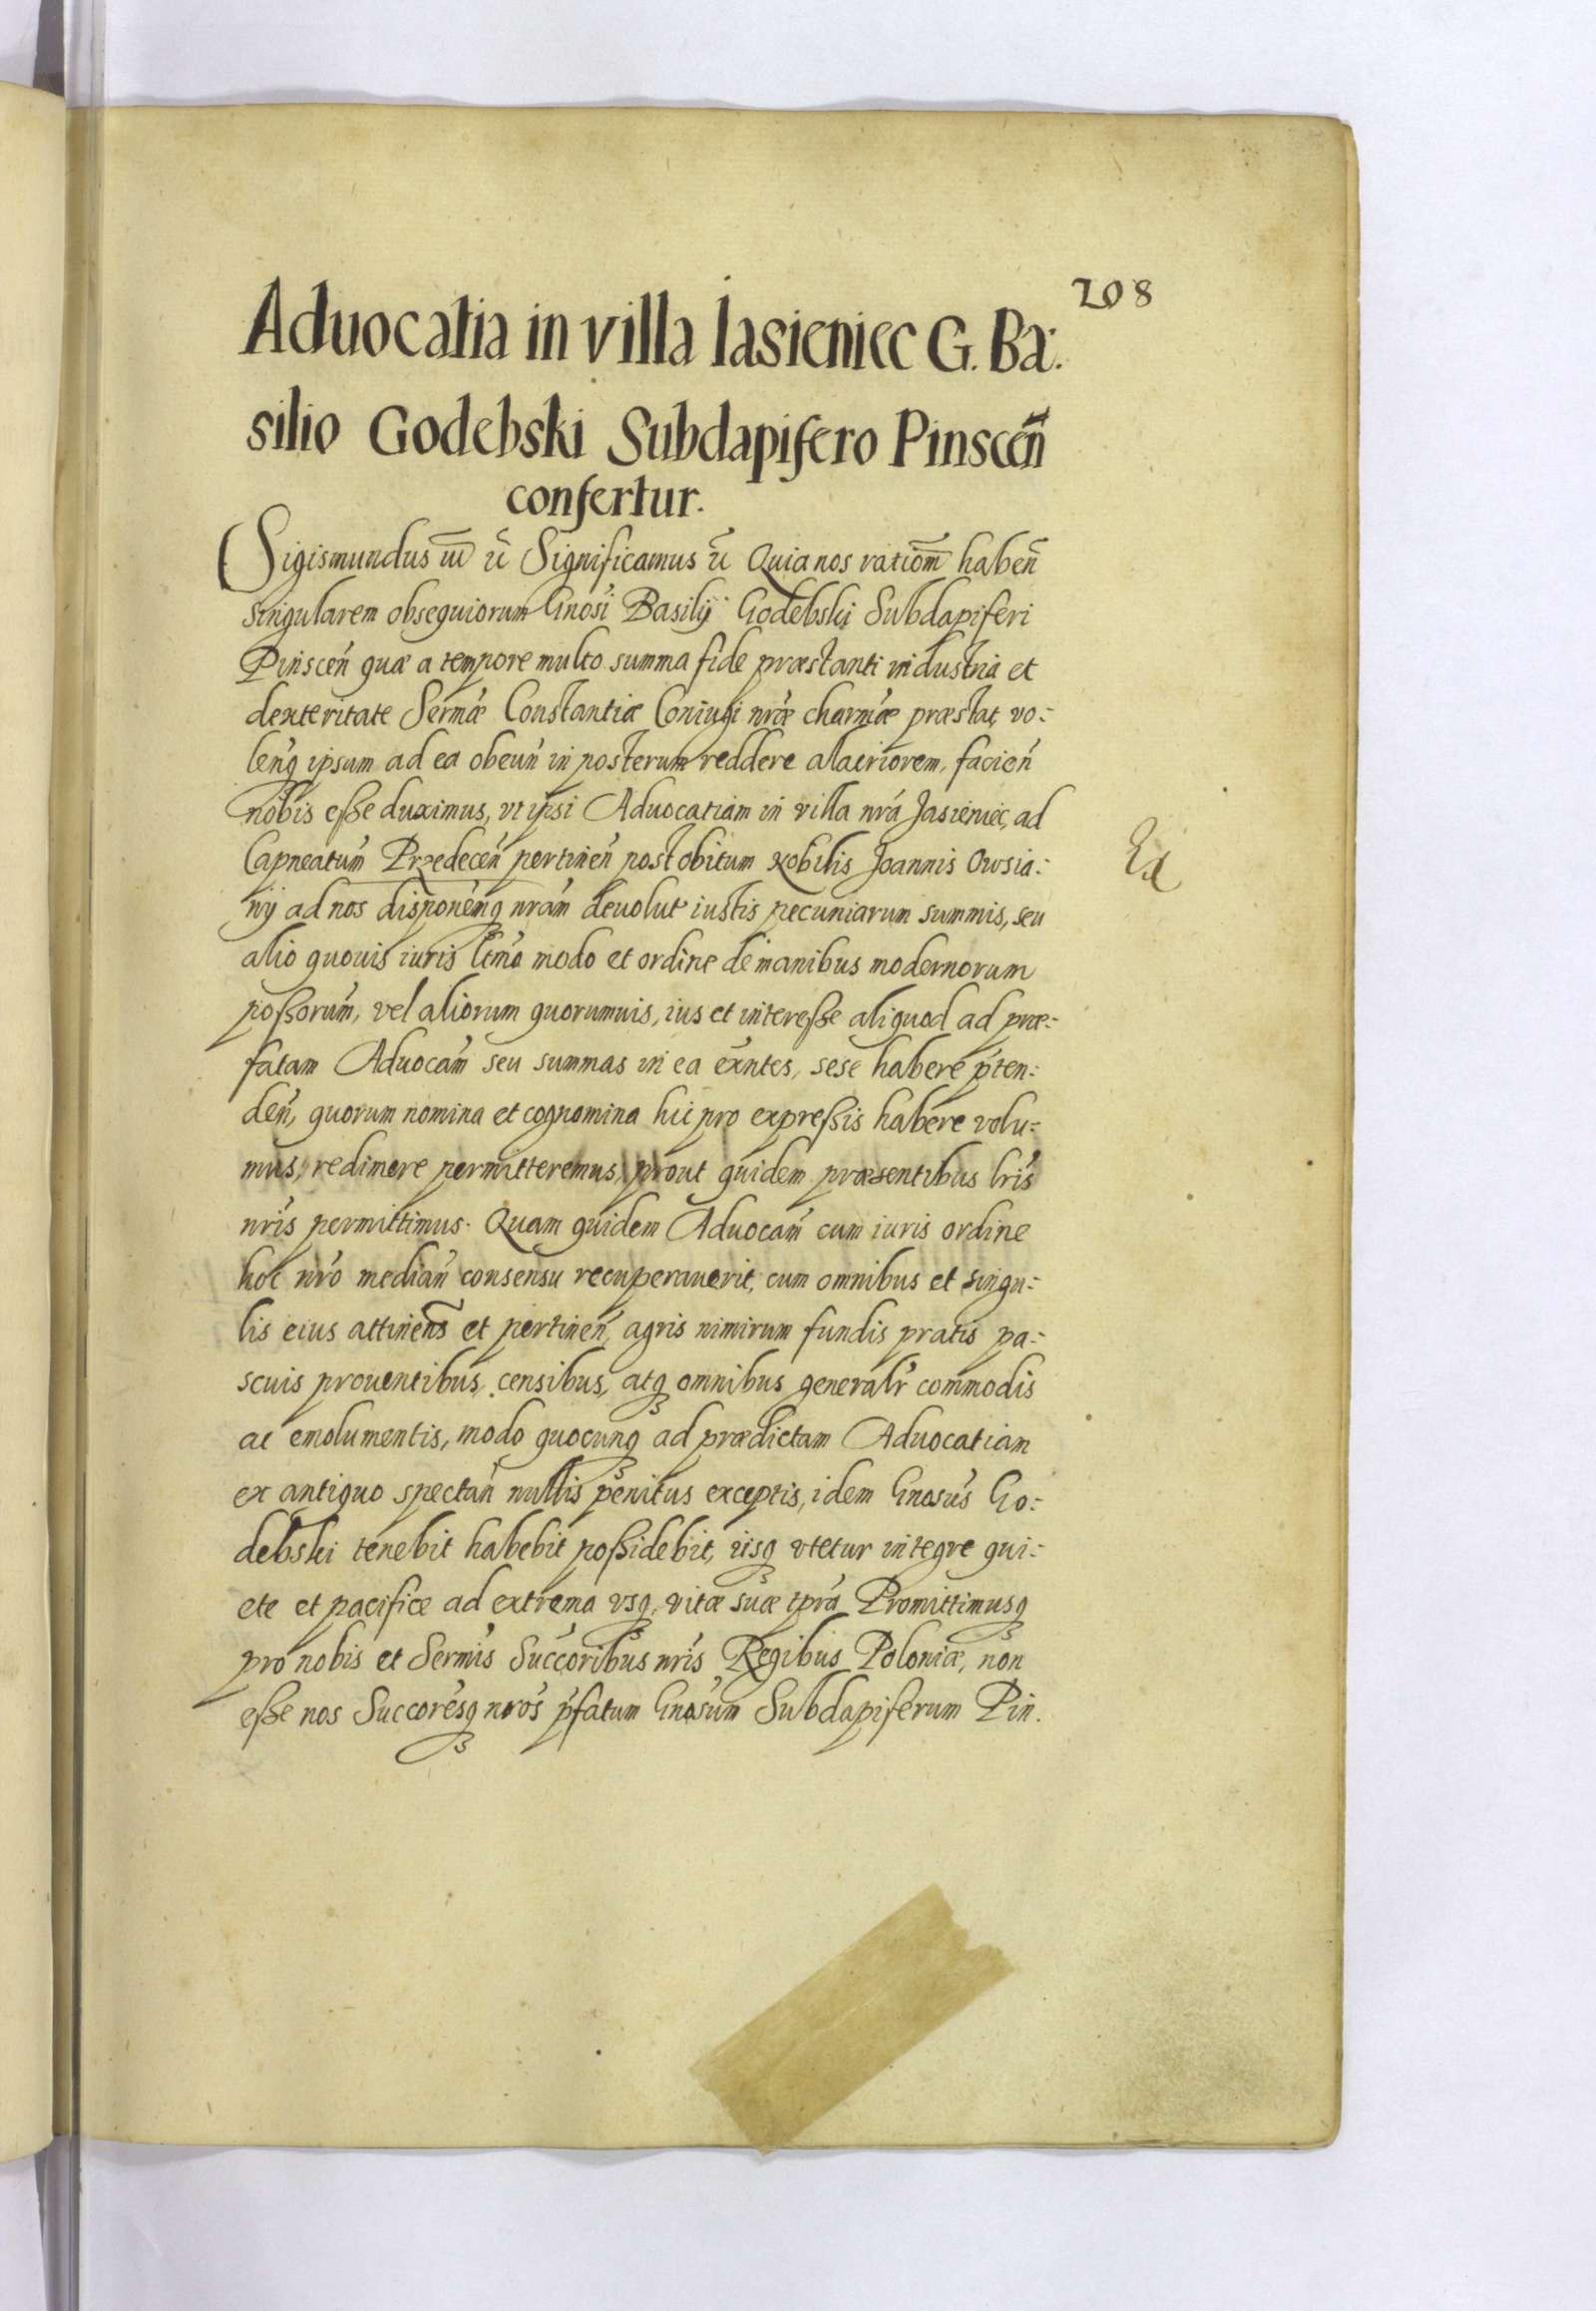 208
Aduocatia in villa Iasieniec G. Ba:
silio Godebski Subdapifero Pinscen̄
confertur.
Sigismundus III etc̃ Significamus etc̃ Quia nos ratiom̄ haben̄
singularem obsequiorum Gnosi Basilij Godebski Subdapiferi
Pinscen̄ quæ a tempore multo summa fide præstanti industria et
dexteritate Sermæ Constantiæ Coniugi nræ charmæ præstat, vo:
lenq̨ ipsum ad ea obeun̄ in posterum reddere alacriorem, facien̄
nobis eße duximus, vt ipsi Aduocatiam in villa nrá Jasieniec, ad
Capneatum Przedecen̄ pertinen̄ post obitum Nobilis Joannis Owsia:
nij ad nos disponenq̨ nrám deuolut iustis pecuniarum summis, seu
alio quouis iuris ltmo modo et ordine de manibus modernorum
poßorum, vel aliorum quorumuis, ius et intereße aliquod ad præ:
fatam Aduocam̄ seu summas in ea exn̄tes, sese habere pten:
den̄, quorum nomina et cognomina hic pro expreßis habere volu:
mus, redimere permitteremus, prout quidem præsentibus lrís
nrís permittimus. Quam quidem Aduocam̄ cum iuris ordine
hoc nró median̄ consensu recuperauerit, cum omnibus et singu:
lis eius attinens et pertinen̄, agris nimirum fundis pratis pa:
scuis prouentibus, censibus, atq̨ omnibus generalr̃ commodis
ac emolumentis, modo quocunq̨ ad prædictam Aduocatiam
ex antiquo spectan̄ nullis penitus exceptis, idem Gnosus Go:
debski tenebit habebit poßidebit, iisq̨ vtetur integre qui:
ete et pacifice ad extrema vsq̨ vitæ suæ tprá Promittimusq̨
pro nobis et Sermis Succoribus nrís Regibus Poloniæ, non
eße nos Succoresq̨ nrós pfatum Gnosum Subdapiferum Pin.